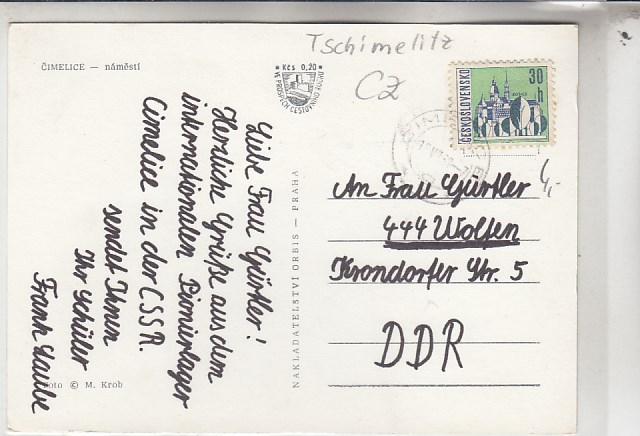 Tschimelitz
CZ
ČIMELICE — náměstí
Kčs 0,20
VE PROSPĚCH CESTOVNÍHO RUCHU
ČESKOSLOVENSKO
30
h
Liebe Frau Gürtler!
Herzliche Grüße aus dem
internationalen Pionierlager
Cimelice in der CSSR.
sendet Ihnen
Ihr Schüler
Frank Laube
NAKLADATELSTVÍ ORBIS — PRAHA
An Frau Gürtler
444 Wolfen
Krondorfer Str. 5
DDR
4,-
Foto © M. Krob